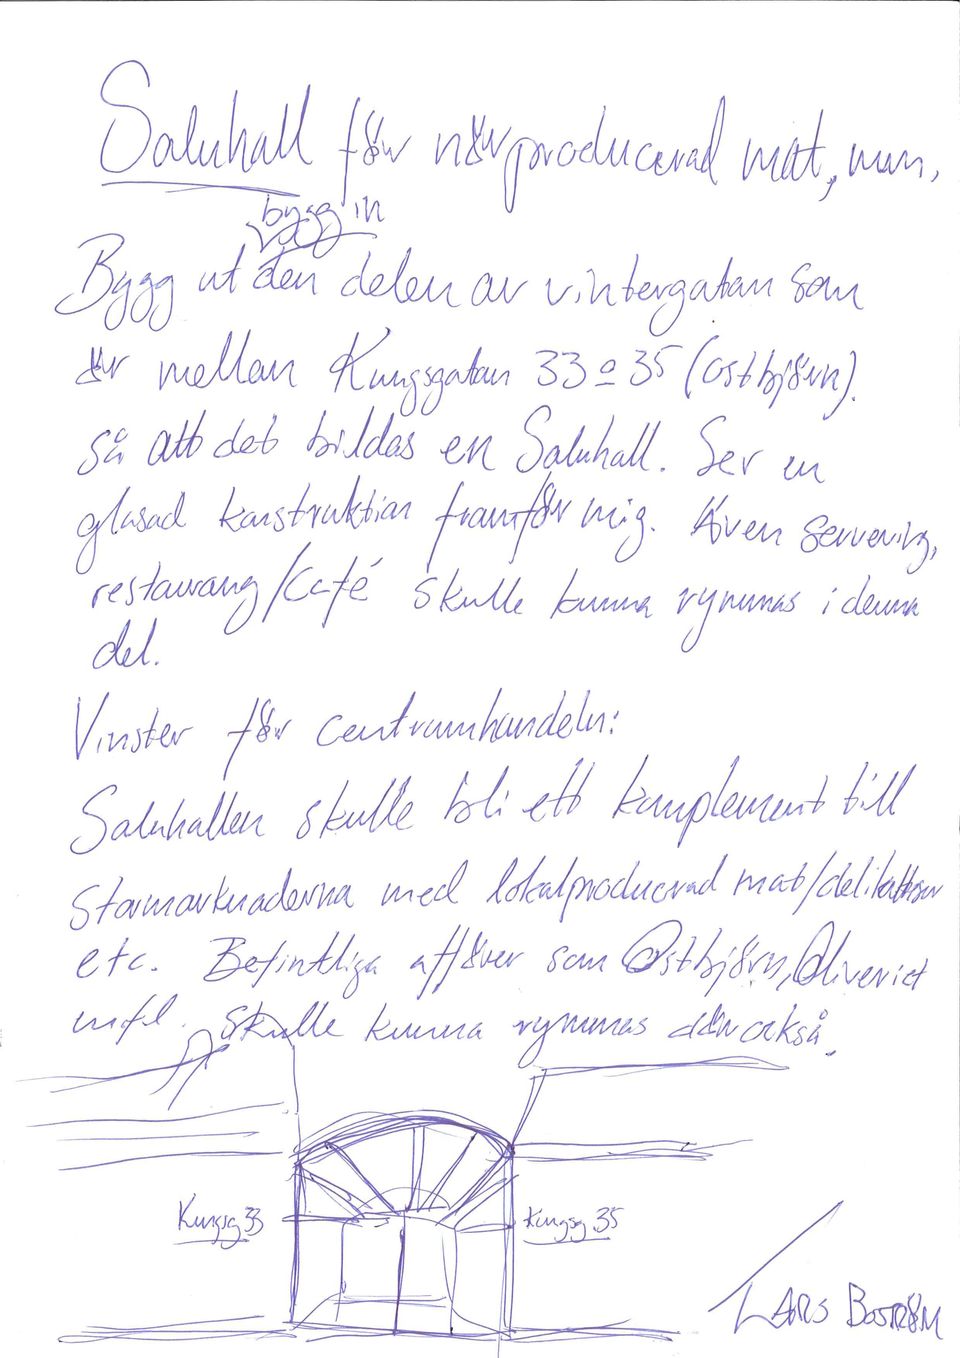 Saluhall för närproducerad mat, mm.
bygg in
Bygg ut den delen av vintergatan som
är mellan Kungsgatan 33 o 35 (ostbjörn).
så att det bildas en Saluhall. Ser en
glasad konstruktion framför mig. Även servering,
restaurang/Café skulle kunna rymmas i denna
del.
Vinster för centrumhandeln:
Saluhallen skulle bli ett komplement till
stormarknaderna med lokalproducerad mat/delikatesser
etc. Befintliga affärer som Ostbjörn, Oliveriet
mfl. skulle kunna rymmas där också.
Kungsg 33
Kungsg 35
LARS BOSTRÖM